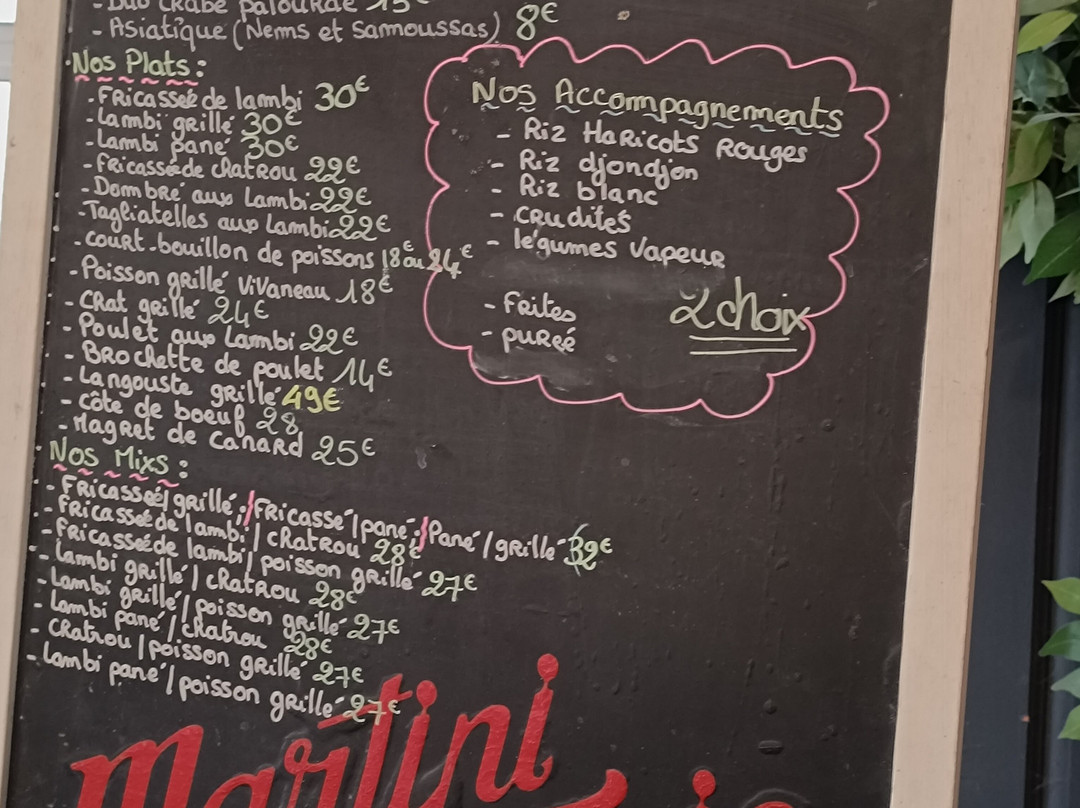 - Duo crabe palourde 15€
- Asiatique (Nems et Samoussas) 8€
Nos Plats:
- Fricassée de lambi 30€
- Lambi grillé 30€
- Lambi pané 30€
- Fricassée de chatrou 22€
- Dombré aux Lambi 22€
- Tagliatelles aux Lambi 22€
- Court-bouillon de poissons 18€ ou 24€
- Poisson grillé Vivaneau 18€
- Crat grillé 24€
- Poulet aux Lambi 22€
- Brochette de poulet 14€
- Langouste grillé 49€
- Côte de boeuf 28
- Magret de canard 25€
Nos Mixs:
- Fricasseé/grillé;/Fricassé/pané;/Pané/grillé 32€
- Fricassée de lambi/chatrou 28€
- Fricassée de lambi/poisson grillé 27€
- Lambi grillé/chatrou 28€
- Lambi grillé/poisson grillé 27€
- Lambi pané/chatrou 28€
- Chatrou/poisson grillé 27€
- Lambi pané/poisson grillé 27€
Nos Accompagnements
- Riz Haricots Rouges
- Riz djondjon
- Riz blanc
- crudités
- légumes vapeur
- Frites
- pureé
2 choix
Martini